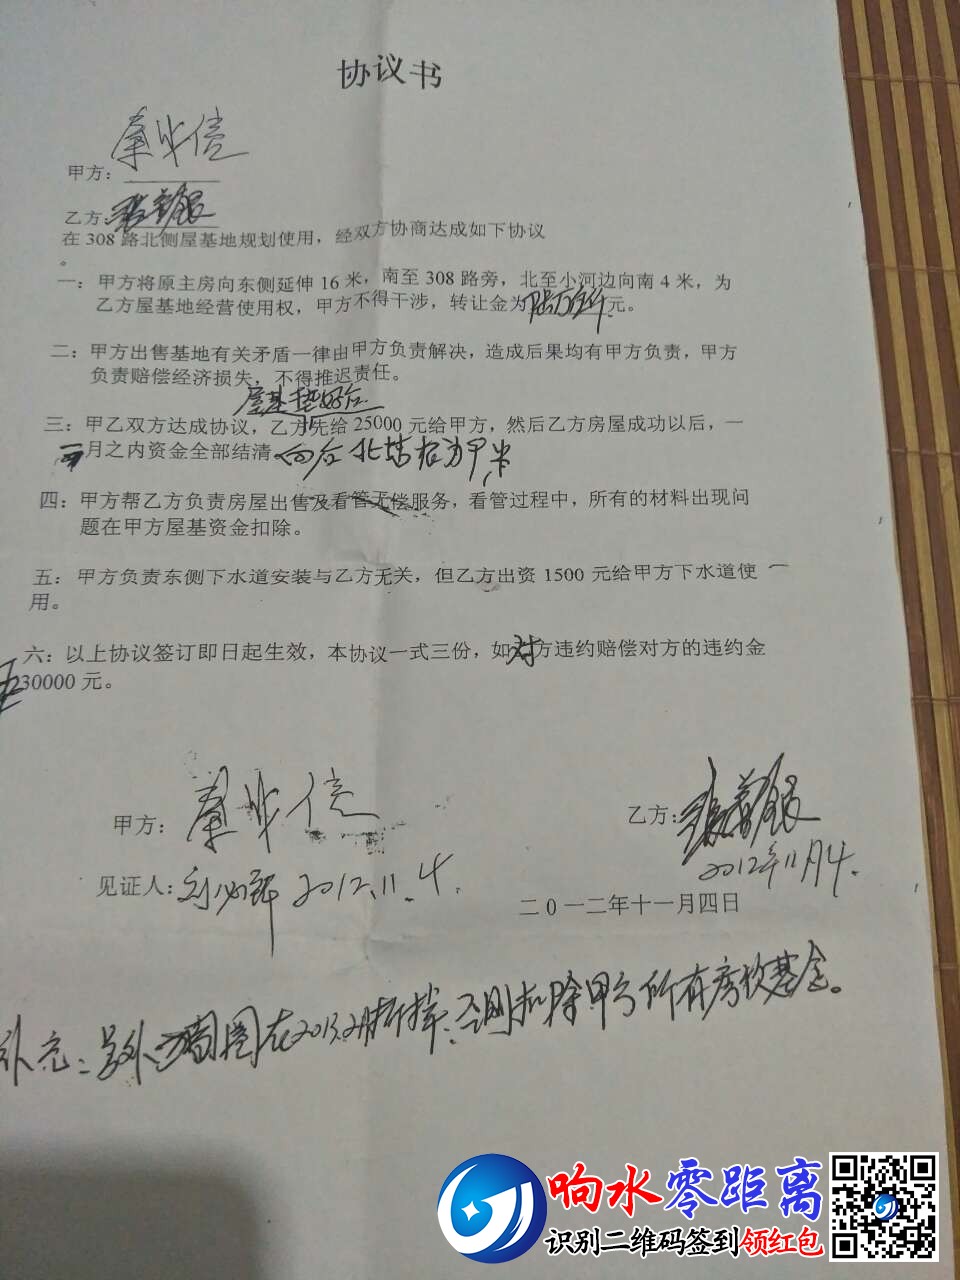 协议书
甲方:
乙方:
在 308 路北侧屋基地规划使用，经双方协商达成如下协议
。
一：甲方将原主房向东侧延伸 16 米，南至 308 路旁，北至小河边向南 4 米，为
乙方屋基地经营使用权，甲方不得干涉，转让金为陆万5仟元。
二：甲方出售基地有关矛盾一律由甲方负责解决，造成后果均有甲方负责，甲方
负责赔偿经济损失，不得推迟责任。
屋基垫好后
三：甲乙双方达成协议，乙方先给 25000 元给甲方，然后乙方房屋成功以后，一
月之内资金全部结清
四：甲方帮乙方负责房屋出售及看管无偿服务，看管过程中，所有的材料出现问
题在甲方屋基资金扣除。
五：甲方负责东侧下水道安装与乙方无关，但乙方出资 1500 元给甲方下水道使
用。
六：以上协议签订即日起生效，本协议一式三份，如对方违约赔偿对方的违约金
30000 元。
甲方：
乙方：
2012年11月4.
见证人： 2012.11.4.
二0一二年十一月四日
补充：另外 围在2013.2月拆掉，否则扣除甲方所有房款基金。
响水零距离
识别二维码签到领红包